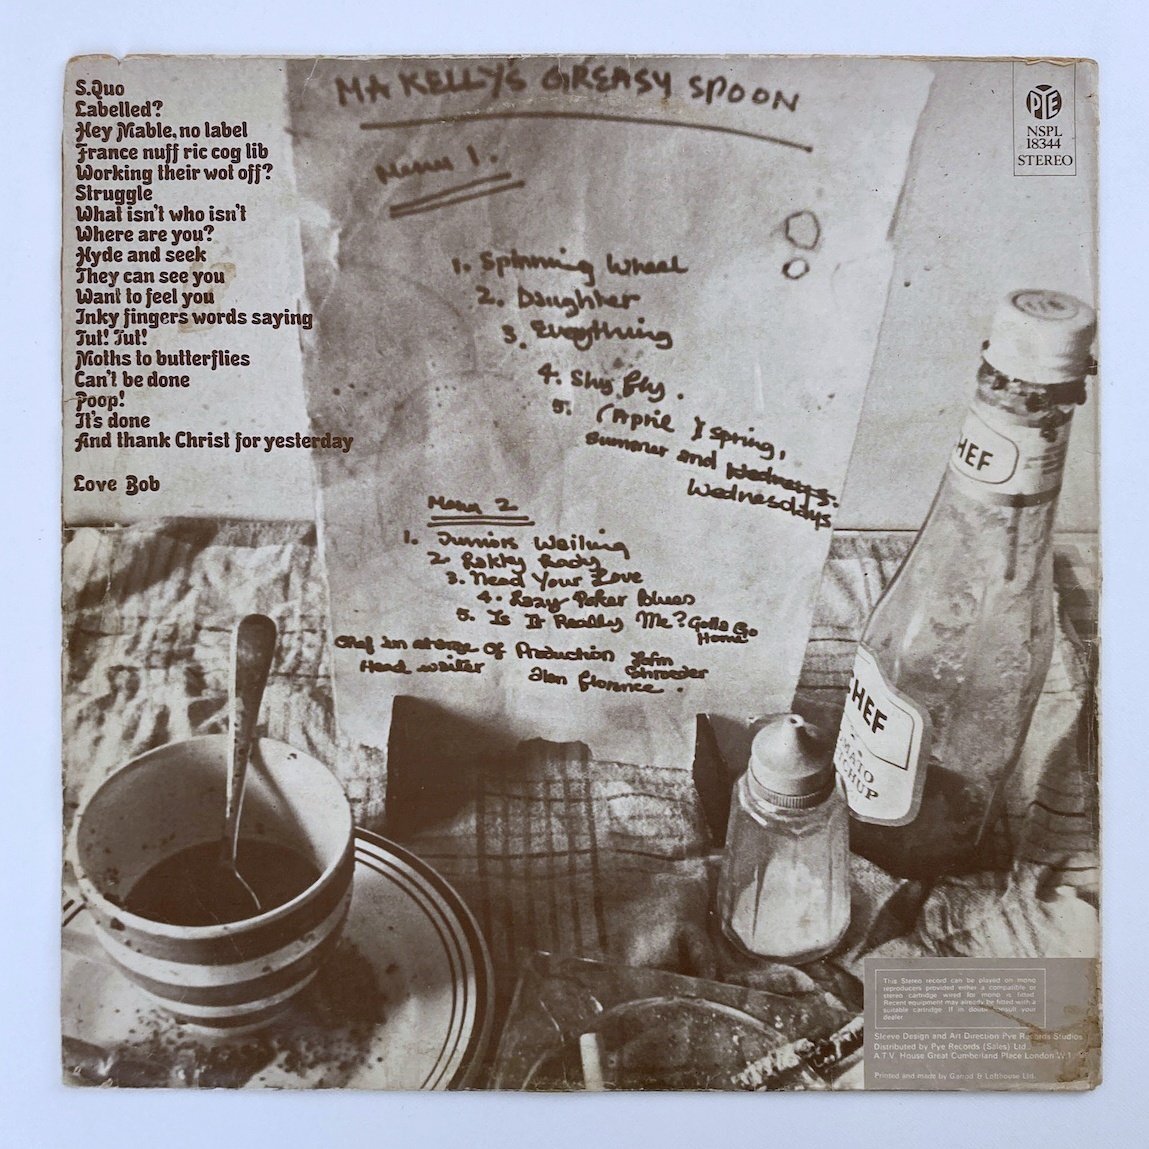 S.Quo
Labelled?
Hey Mable, no label
France nuff ric cog lib
Working their wot off?
Struggle
What isn't who isn't
Where are you?
Hyde and seek
They can see you
Want to feel you
Inky fingers words saying
Tut! Tut!
Moths to butterflies
Can't be done
Poop!
It's done
And thank Christ for yesterday
Love Bob
MA KELLY'S GREASY SPOON
Menu 1.
1. Spinning Wheel
2. Daughter
3. Everything
4. Shy fly.
5. (April) Spring,
Summer and Wednesdays
Menu 2
1. Juniors Wailing
2. Lakky Lady
3. Need Your Love
4. Lazy Poker Blues
5. Is It Really Me? Gotta Go
Home
Chef in charge Of Production John
Schroeder
Head waiter Alan florence.
PYE
NSPL
18344
STEREO
CHEF
CHEF
TOMATO
KETCHUP
This Stereo record can be played on mono
reproducers provided either a compatible or
stereo cartridge wired for mono is fitted.
Recent equipment may already be fitted with a
suitable cartridge. If in doubt consult your
dealer.
Sleeve Design and Art Direction Pye Records Studios
Distributed by Pye Records (Sales) Ltd.
A.T.V. House Great Cumberland Place London W.1.
Printed and made by Garrod & Lofthouse Ltd.